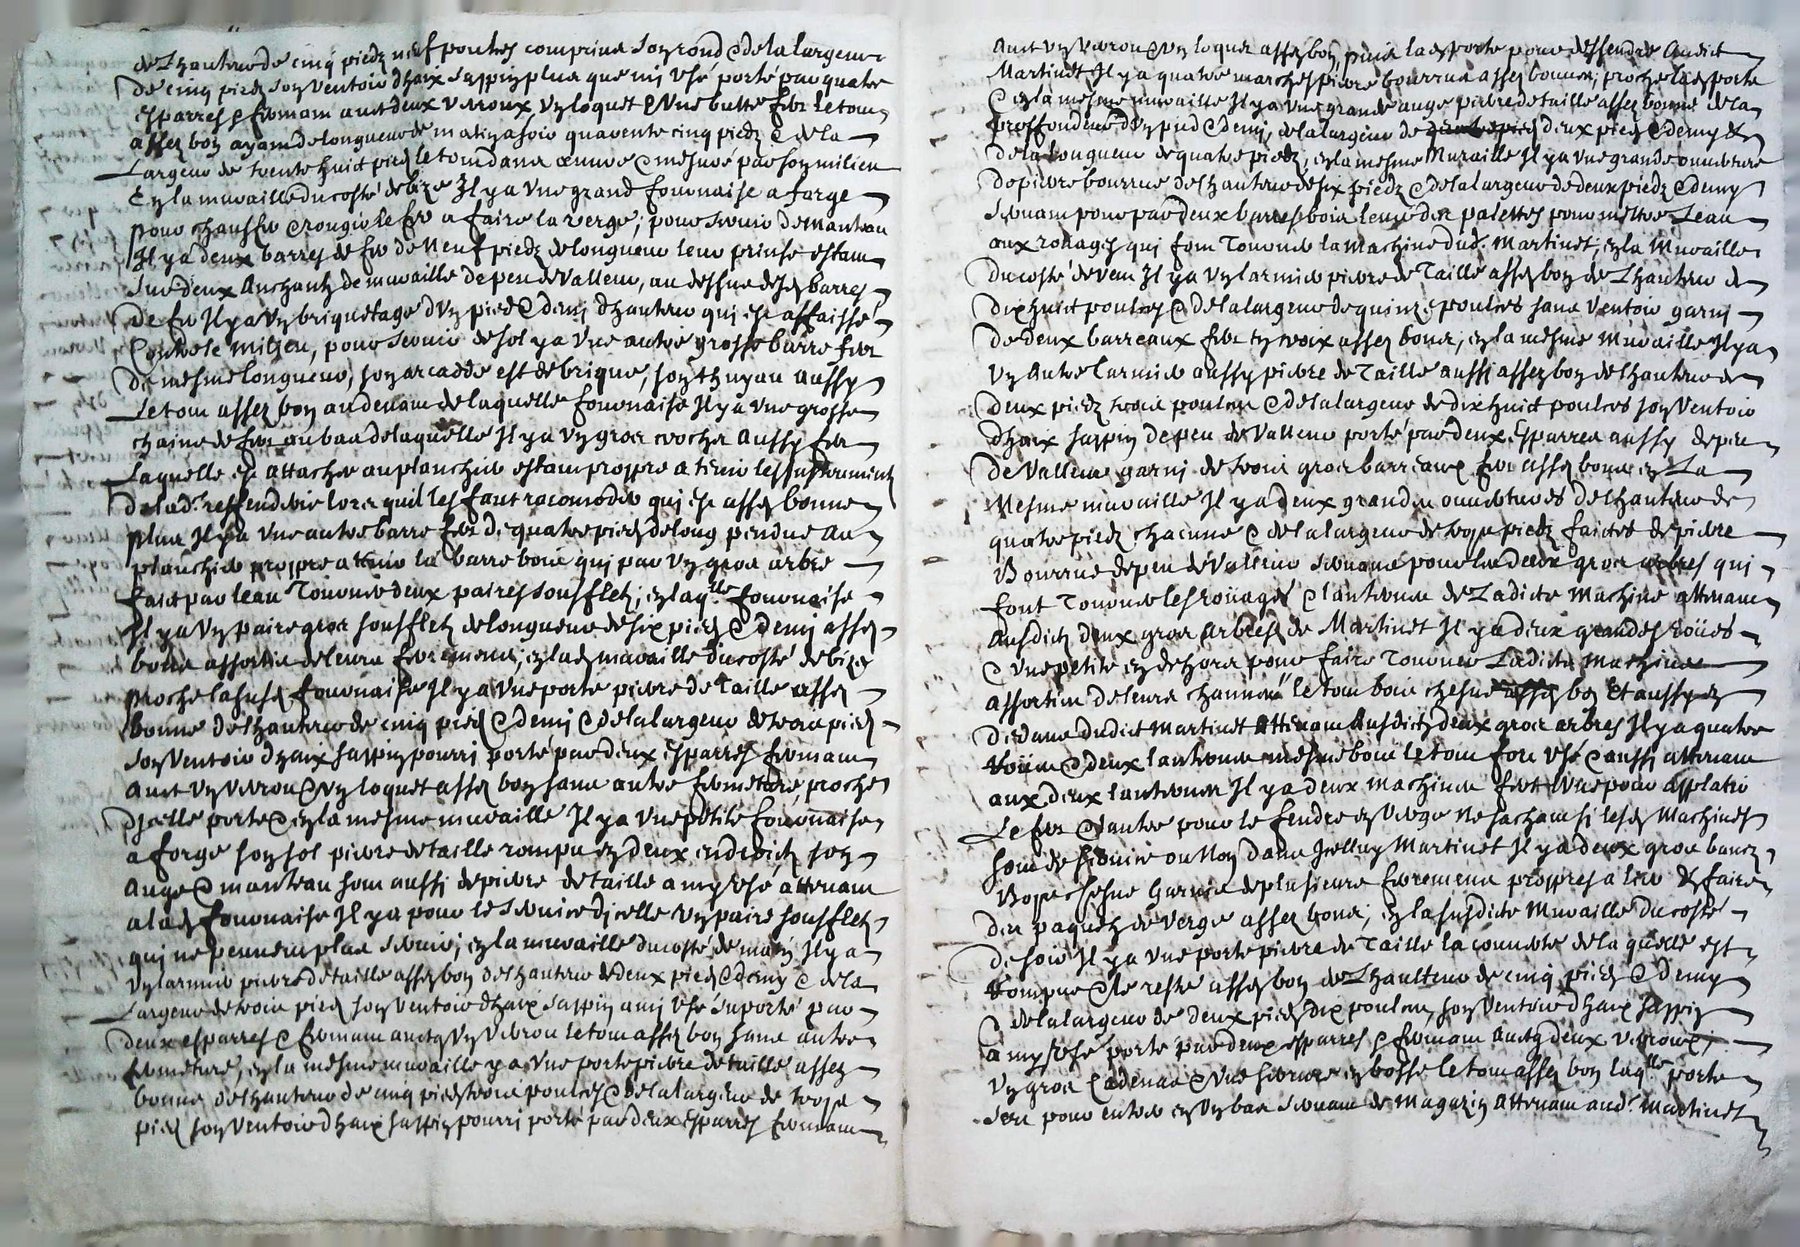 de Lhauteur de cinq piedz neuf poulces comprins son rond & de la largeur
De cinq piedz son ventoir dhaix sappin plus que my usé porté par quatre
esparres & fermant avec deux verroux, un loquet & une butte fer le tout
assez bon ayant de longueur de matin a soir quarente cinq piedz & de la
Largeur de trente huict piedz le tout dans œuvre & mesuré par son milieu
En la muraille du costé de bize Il y a une grand fournaise a forge
pour chauffer & rougir le fer a faire la verge; pour servir de manteau
Il y a deux barres de fer de neuf piedz de longueur leur prinse estant
Sur deux anchantz de muraille de peu de valleur, au dessus desd barres
De fer Il y a un briquetage dun pied & demi dhauteur qui est affaissé
Contre le milieu, pour servir de sol y a une autre grosse barre fer
De mesme longueur, son arcadde est de brique, son thuyau aussy
Le tout assez bon au devant de laquelle fournaise Il y a une grosse
chaine de fer au bas de laquelle Il y a un gros crochet aussy fer
Laquelle est attachée au planchier estant propre a tenir les instruments
De lad. reffenderie lors quil les faut racomoder qui est assez bonne
plus Il y a une autre barre fer de quatre piedz de long pendue au
planchier propre a tenir la barre bois qui par un gros arbre
faict par leau Tourner deux paires soufflez; en laq.lle fournaise
Il y a un paire gros soufflez de longueur de six piedz & demi assez
bons assortis de leurs ferrements; en lad muraille du costé de bize
proche lasusd fournaise Il y a une porte pierre de Taille assez
bonne de Lhauteur de cinq piedz & demi & de la largeur de trois piedz
son ventoir dhaix sappin pourri porté par deux esparres fermant
avec un verrou & un loquet assez bon sans autre fermeture proche
dicelle porte & en la mesme muraille Il y a une petite fournaise
a forge son sol pierre de taille rompu en deux endroictz son
auge & manteau sont aussi de pierre de taille a my usé attenant
a lad fournaise Il y a pour le service dicelle un paire soufflez
qui ne peuvent plus servir; en la muraille du costé de matin Il y a
un larmier pierre de taille assez bon de Lhauteur de deux piedz & demy & de la
Largeur de trois piedz son ventoir dhaix sappin a mi usé suporté par
deux esparres & fermant avecq un verrou le tout assez bon sans autre
fermeture, en la mesme muraille y a une porte pierre de taille assez
bonne de Lhauteur de cinq piedz trois poulces & de la largeur de trois
piedz son ventoir dhaix sappin pourri porté par deux esparres fermant
avec un verrou & un loquet assez bon, puis lad porte pour dessendre audict
Martinet Il y a quatre marches pierre bourrue assez bonnes; proche lad porte
& en la mesme muraille Il y a une grande auge pierre de taille assez bonne de la
proffondeur dun pied & demi, de la largeur de deux piedz & demy &
De la longueur de quatre piedz, en la mesme Muraille Il y a une grande ouverture
De pierre bourrue de Lhauteur de six piedz & de la largeur de deux piedz & demy
servant pour par deux barres bois lever des palettes pour mettre Leau
aux rouages qui font Tourner la machine dud. Martinet, en la muraille
Du costé de vent Il y a un larmier pierre de Taille assez bon de Lhauteur de
Dix huict poulces & de la largeur de quinze poulces sans ventoir garni
De deux barreaux fer en croix assez bons, en la mesme muraille Il y a
un autre larmier aussy pierre de Taille aussi assez bon de Lhauteur de
Deux piedz trois poulces & de la largeur de dix huict poulces son ventoir
dhaix sappin de peu de valleur porté par deux esparres aussy de peu
De valleur garni de trois gros barreaux fer assez bons en La
Mesme muraille Il y a deux grandes ouvertures de Lhauteur de
quatre piedz chacune & de la largeur de trois piedz faictes de pierre
Bourrue de peu de valleur servans pour les deux gros arbres qui
font Tourner les rouages & lanternes de Ladicte machine attenant
Ausdictz deux gros arbres de Martinet Il y a deux grandes roües
& une petite en dehors pour faire Tourner Ladicte machine
assorties de leurs channeaux le tout bois chesne bon Et aussy en
Dedans dudict Martinet attenant Ausdictz deux gros arbres Il y a quatre
roües & deux lanternes mesme bois le tout fort usé & aussi attenant
aux deux lanternes Il y a deux machines fer lune pour applatir
Le fer & lautre pour le fendre en verge ne sachant si lesd Machines
sont de service ou non Dans Icelluy Martinet Il y a deux gros bancz
Bois chesne garnis de plusieurs ferrements propres a lier & faire
Des paquetz de verge assez bons; en la susdicte muraille du costé
De soir Il y a une porte pierre de Taille la couverte de laquelle est
Rompue & le reste assez bon de Lhaulteur de cinq piedz & demy
& de la largeur de deux piedz dix poulces son ventoir dhaix sappin
a my usé porté par deux esparres & fermant avecq deux verroux,
un gros cadenas & une serrure en bosse le tout assez bon laq.lle porte
sert pour entrer en un bas servant de magazin attenant aud. Martinet